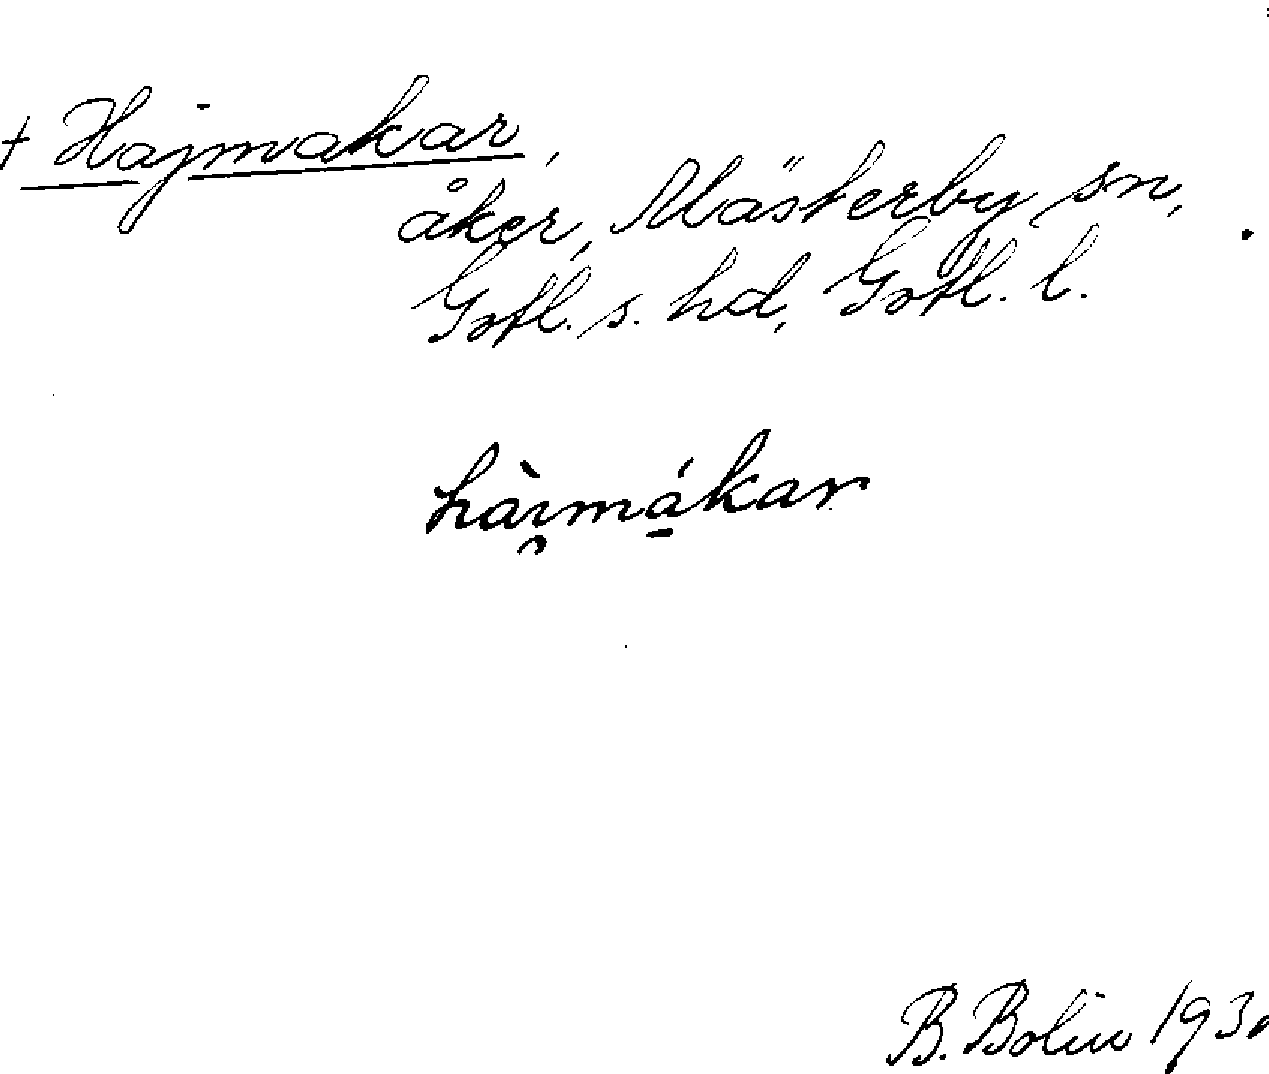 † Hajmakar,
åker, Mästerby sn,
Gotl. s. hd, Gotl. l.
hài̯má̱kar
B. Bolin